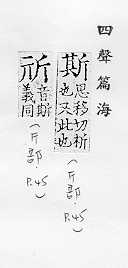 四聲篇海
斯
思移切析
也又此也
(斤部 P.45)
音斯
義同
(斤部 P.45)